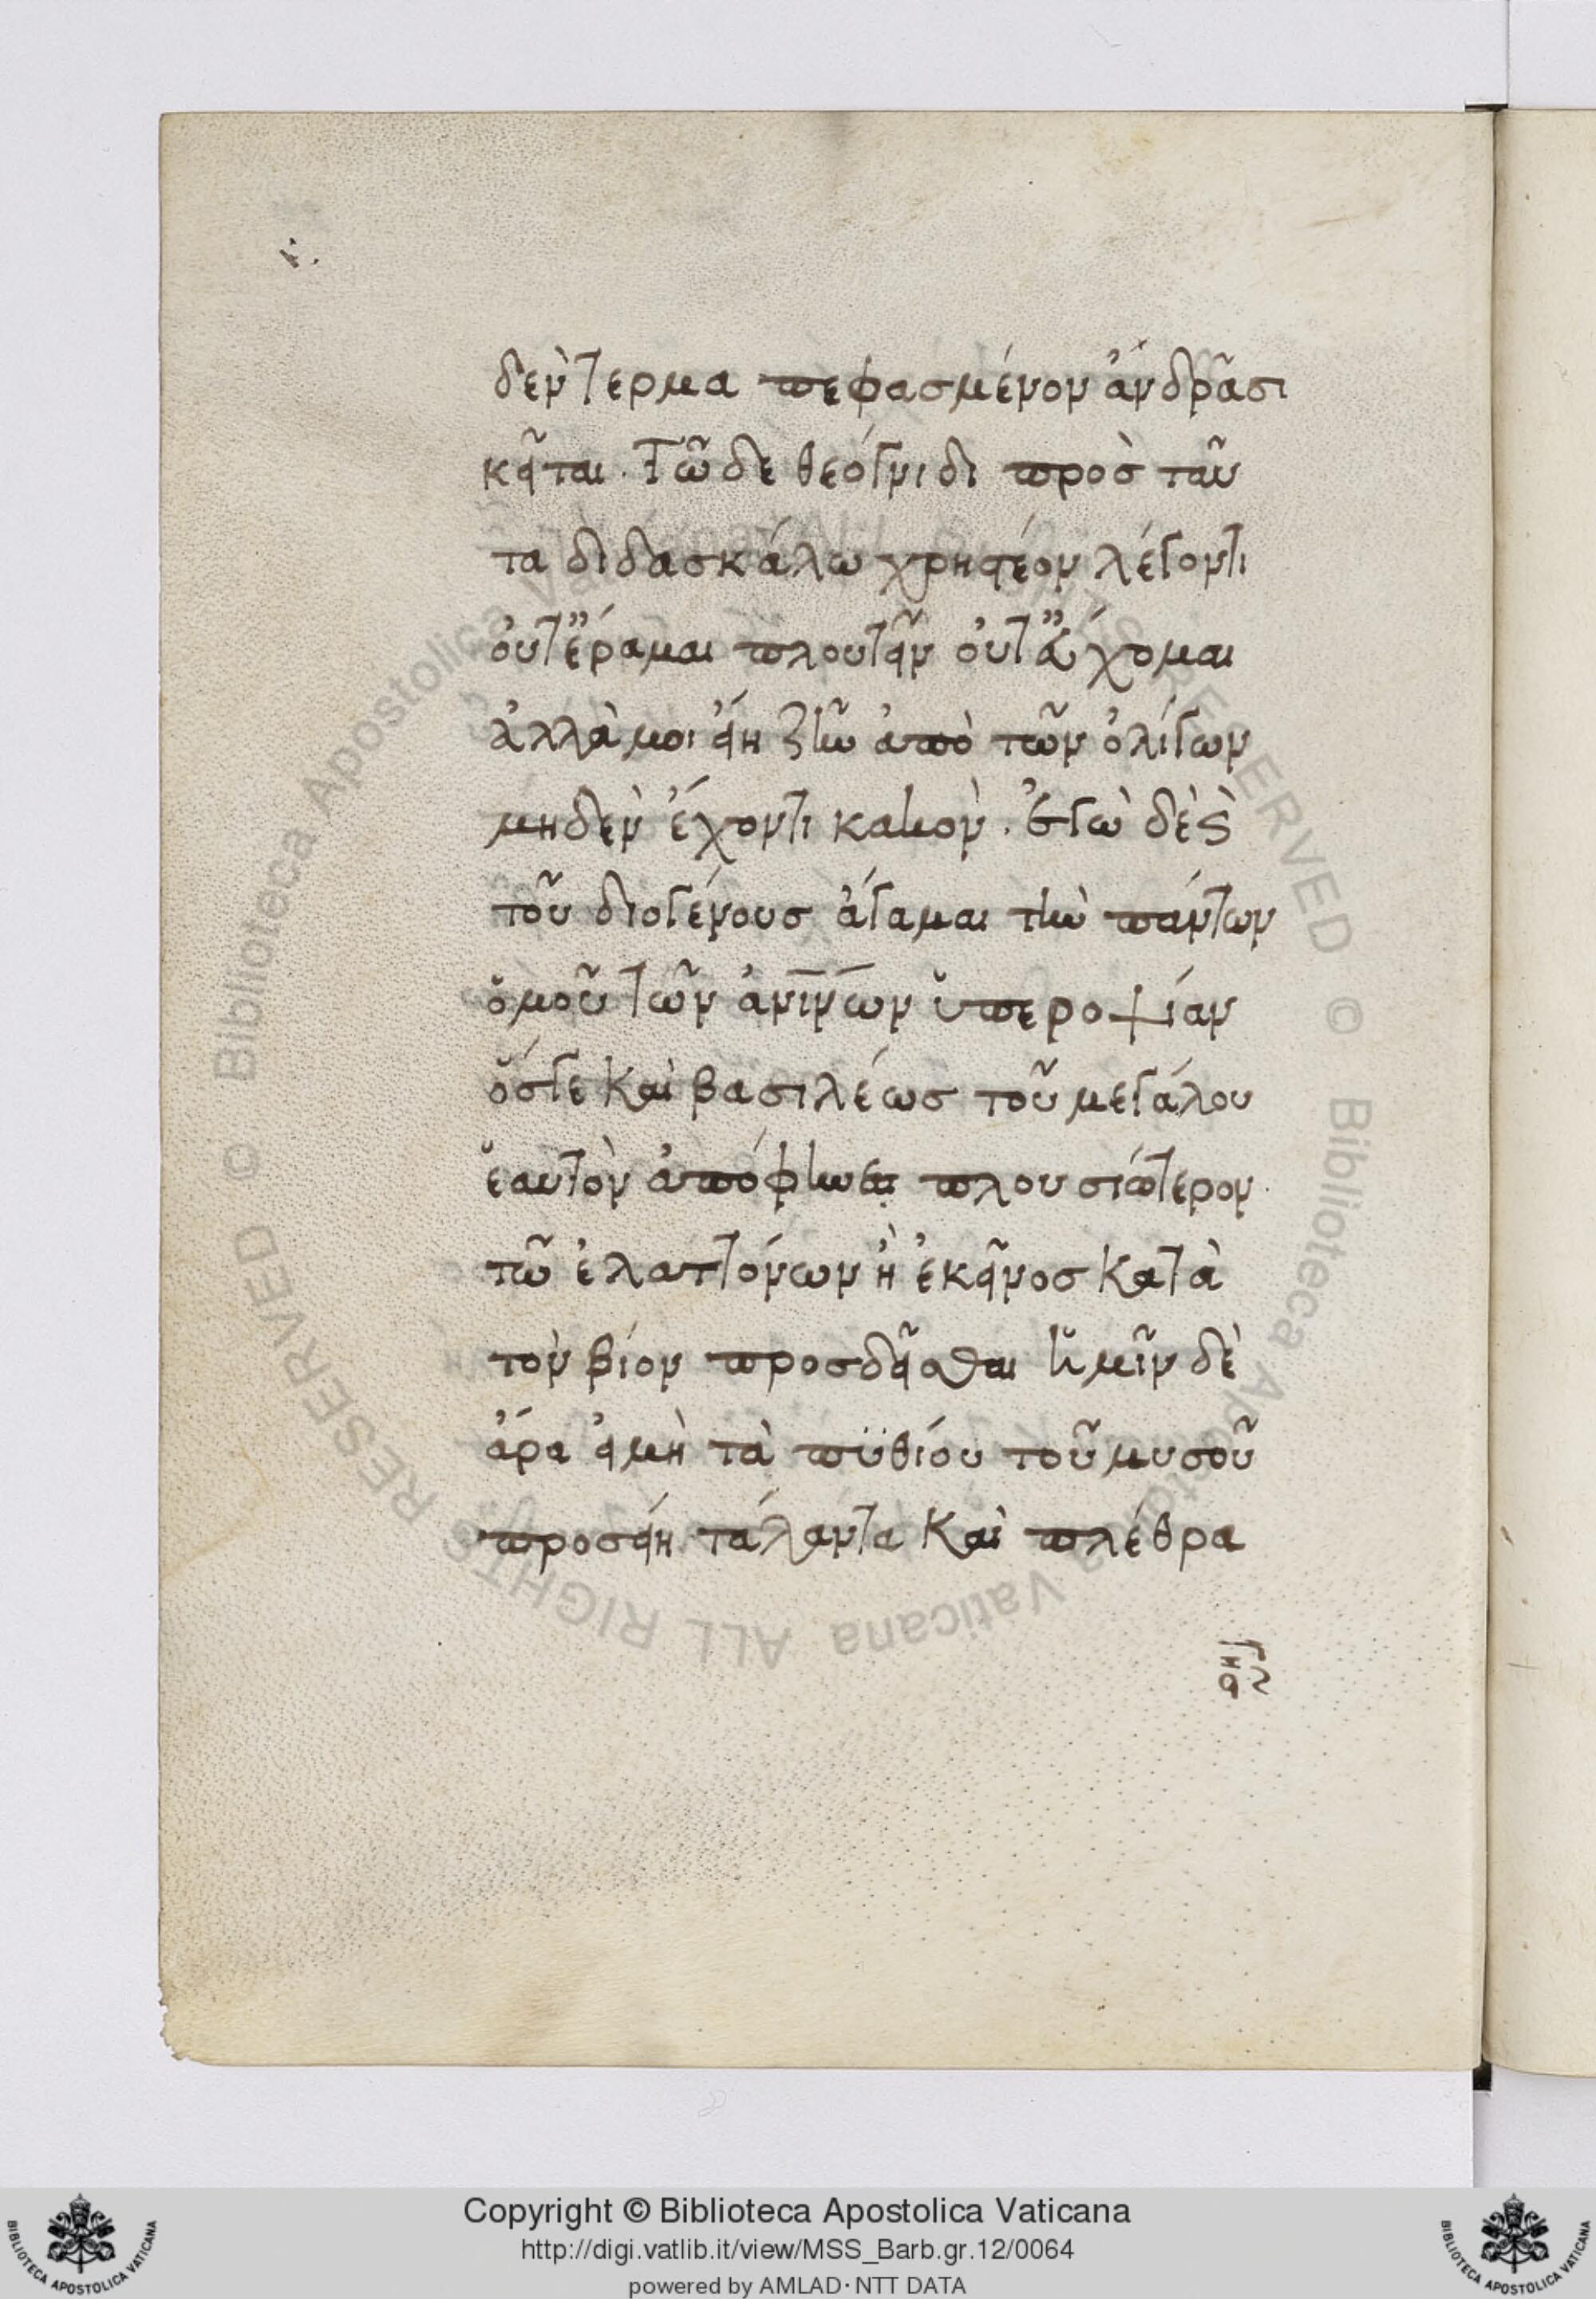 δὲν τερμα πεφασμένον ἀνδρᾶσι
κεῖται. Τῶ δε θεόγνιδι πρὸς ταῦ
τα διδασκάλω χρηστέον λέγοντι
οὐτ ἔραμαι πλουτεῖν οὐτ εὔχομαι
ἀλλὰ μοι εἴη ζῆν ἀπὸ τῶν ὀλίγων
μηδὲν ἔχοντι κακὸν. Ἐγὼ δὲ ϛ̀
τοῦ διογένους ἄγαμαι τὴν πάντων
ὁμοῦ τῶν ἀνίνων ὑπεροψίαν
ὅστε Καὶ βασιλέως τοῦ μεγάλου
ἑαυτὸν ἀπόφηνε πλουσιώτερον
τῶ ἐλαττόνων ἢ ἐκεῖνος Κατὰ
τὸν βίον προσδεῖσθαι ἡμῖν δὲ
ἄρα εἰ μὴ τὰ πϋθίου τοῦ μυσοῦ
προσείη τάλαντα Καὶ πλέθρα
Copyright © Biblioteca Apostolica Vaticana
http://digi.vatlib.it/view/MSS_Barb.gr.12/0064
powered by AMLAD·NTT DATA
© Biblioteca Apostolica Vaticana ALL RIGHTS RESERVED
BIBLIOTECA APOSTOLICA VATICANA
BIBLIOTECA APOSTOLICA VATICANA